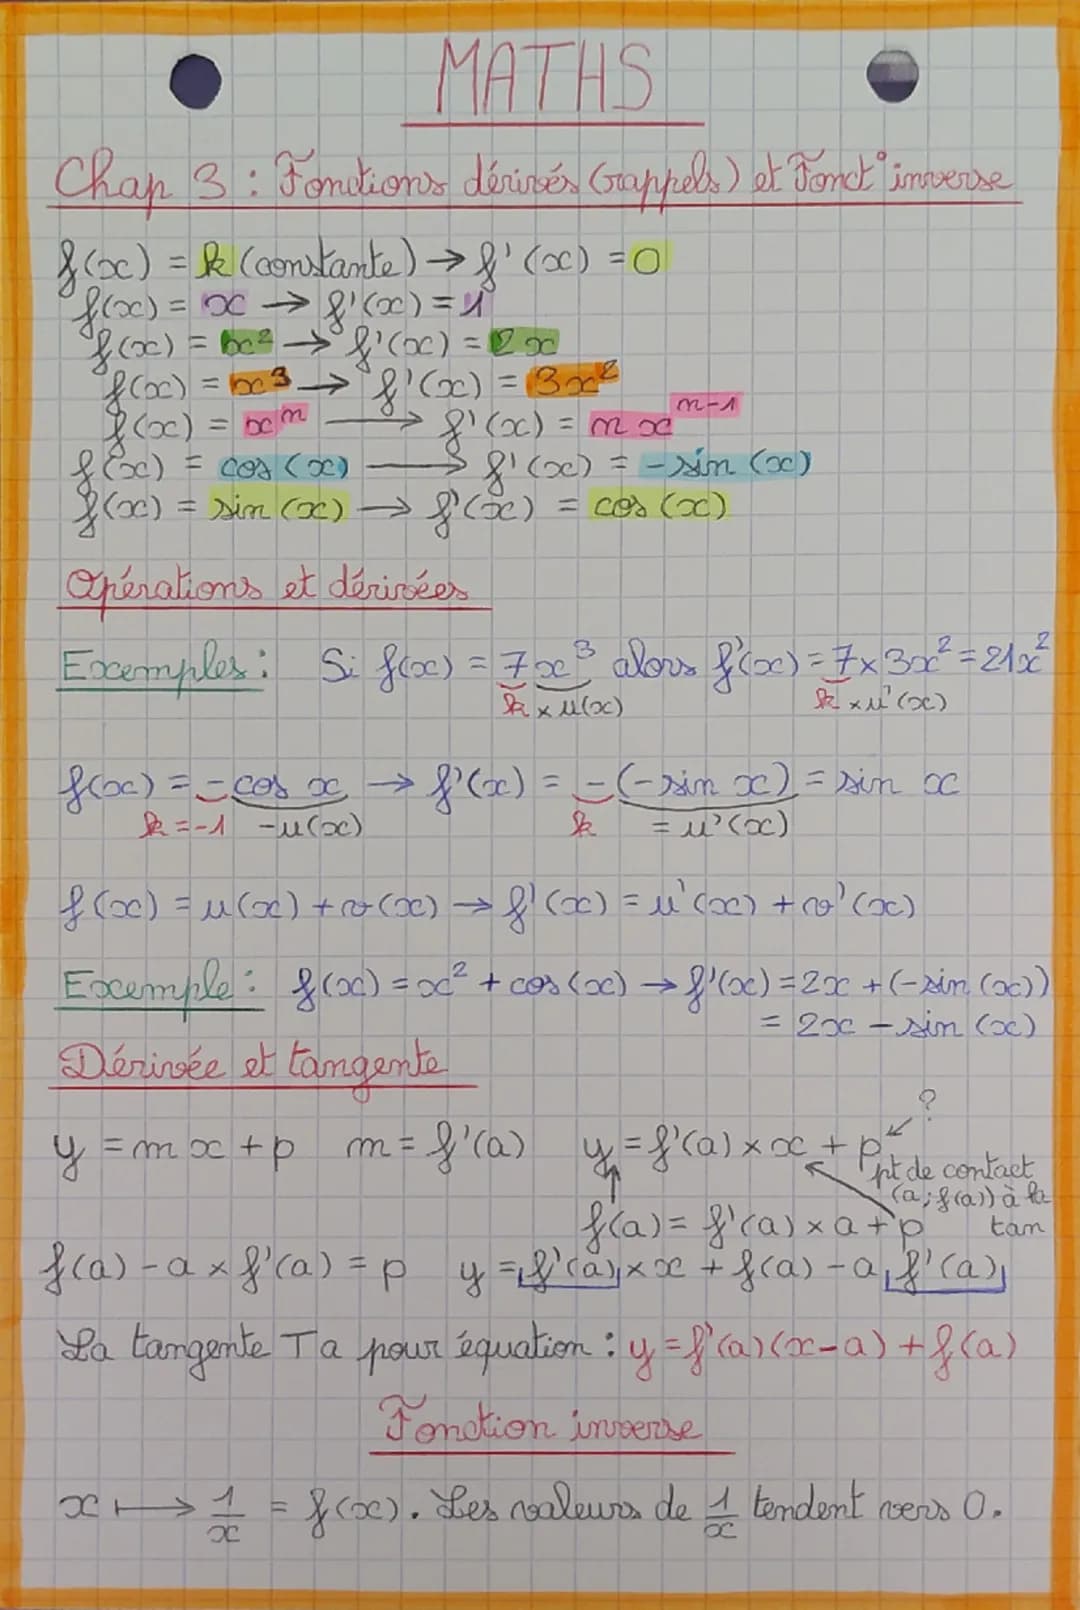 MATHS
Chap 3 : Fonctions dérivés (rappels) et Fonct° inverse
f(x) = k (constante) → f'(x) = 0
f(x) = x → f'(x) = 1
f(x) = x² → f'(x) = 2x
f(x) = x³ → f'(x) = 3x²
f(x) = xⁿ → f'(x) = n xⁿ⁻¹
f(x) = cos (x) → f'(x) = -sin (x)
f(x) = sin (x) → f'(x) = cos (x)
Opérations et dérivées
Exemples : Si f(x) = 7x³ alors f'(x) = 7×3x² = 21x²
k × u(x) k × u'(x)
f(x) = - cos x → f'(x) = -(-sin x) = sin x
k = -1 -u(x) k = u'(x)
f(x) = u(x) + v(x) → f'(x) = u'(x) + v'(x)
Exemple : f(x) = x² + cos(x) → f'(x) = 2x + (-sin(x))
= 2x - sin (x)
Dérivée et tangente
?
y = mx + p m = f'(a) y = f'(a) × x + p
pt de contact
(a ; f(a)) à la
tan
f(a) = f'(a) × a + p
f(a) - a × f'(a) = p y = f'(a) × x + f(a) - a f'(a)
La tangente Ta pour équation : y = f'(a)(x-a) + f(a)
Fonction inverse
x ↦ 1/x = f(x). Les valeurs de 1/x tendent vers 0.